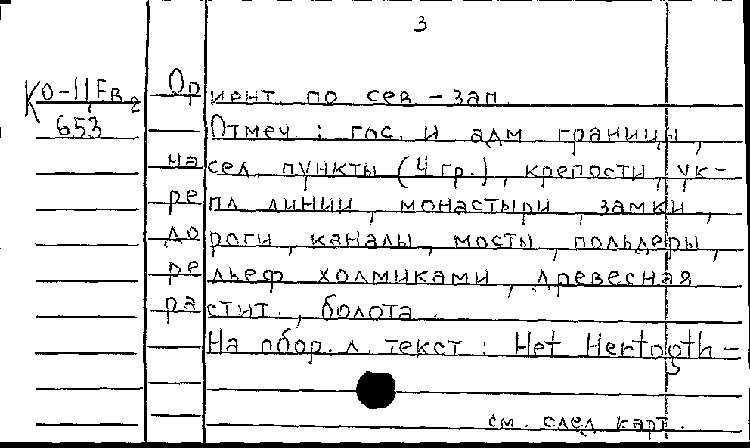 3
КО-11,Ев2 Ориент. по сев-зап.
653 Отмеч.: гос. и адм. границы,
насел. пункты (4 гр.), крепости, ук-
репл. линии, монастыри, замки,
дороги, каналы, мосты, польдеры,
рельеф холмиками, древесная
растит., болота.
На обор. л. текст: Het Hertogh-
см. след. карт.